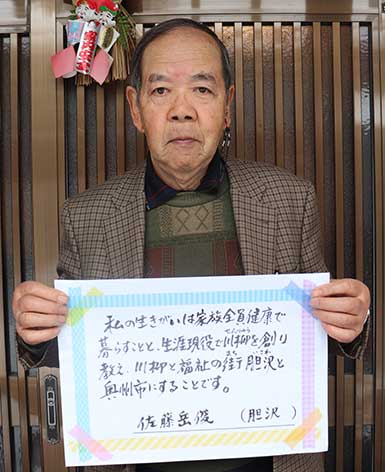 私の生きがいは家族全員健康で
暮らすことと、生涯現役で川柳を創り
せんりゅう
教え、川柳と福祉の街胆沢と
まち いさわ
奥州市にすることです。
佐藤岳俊 (胆沢)